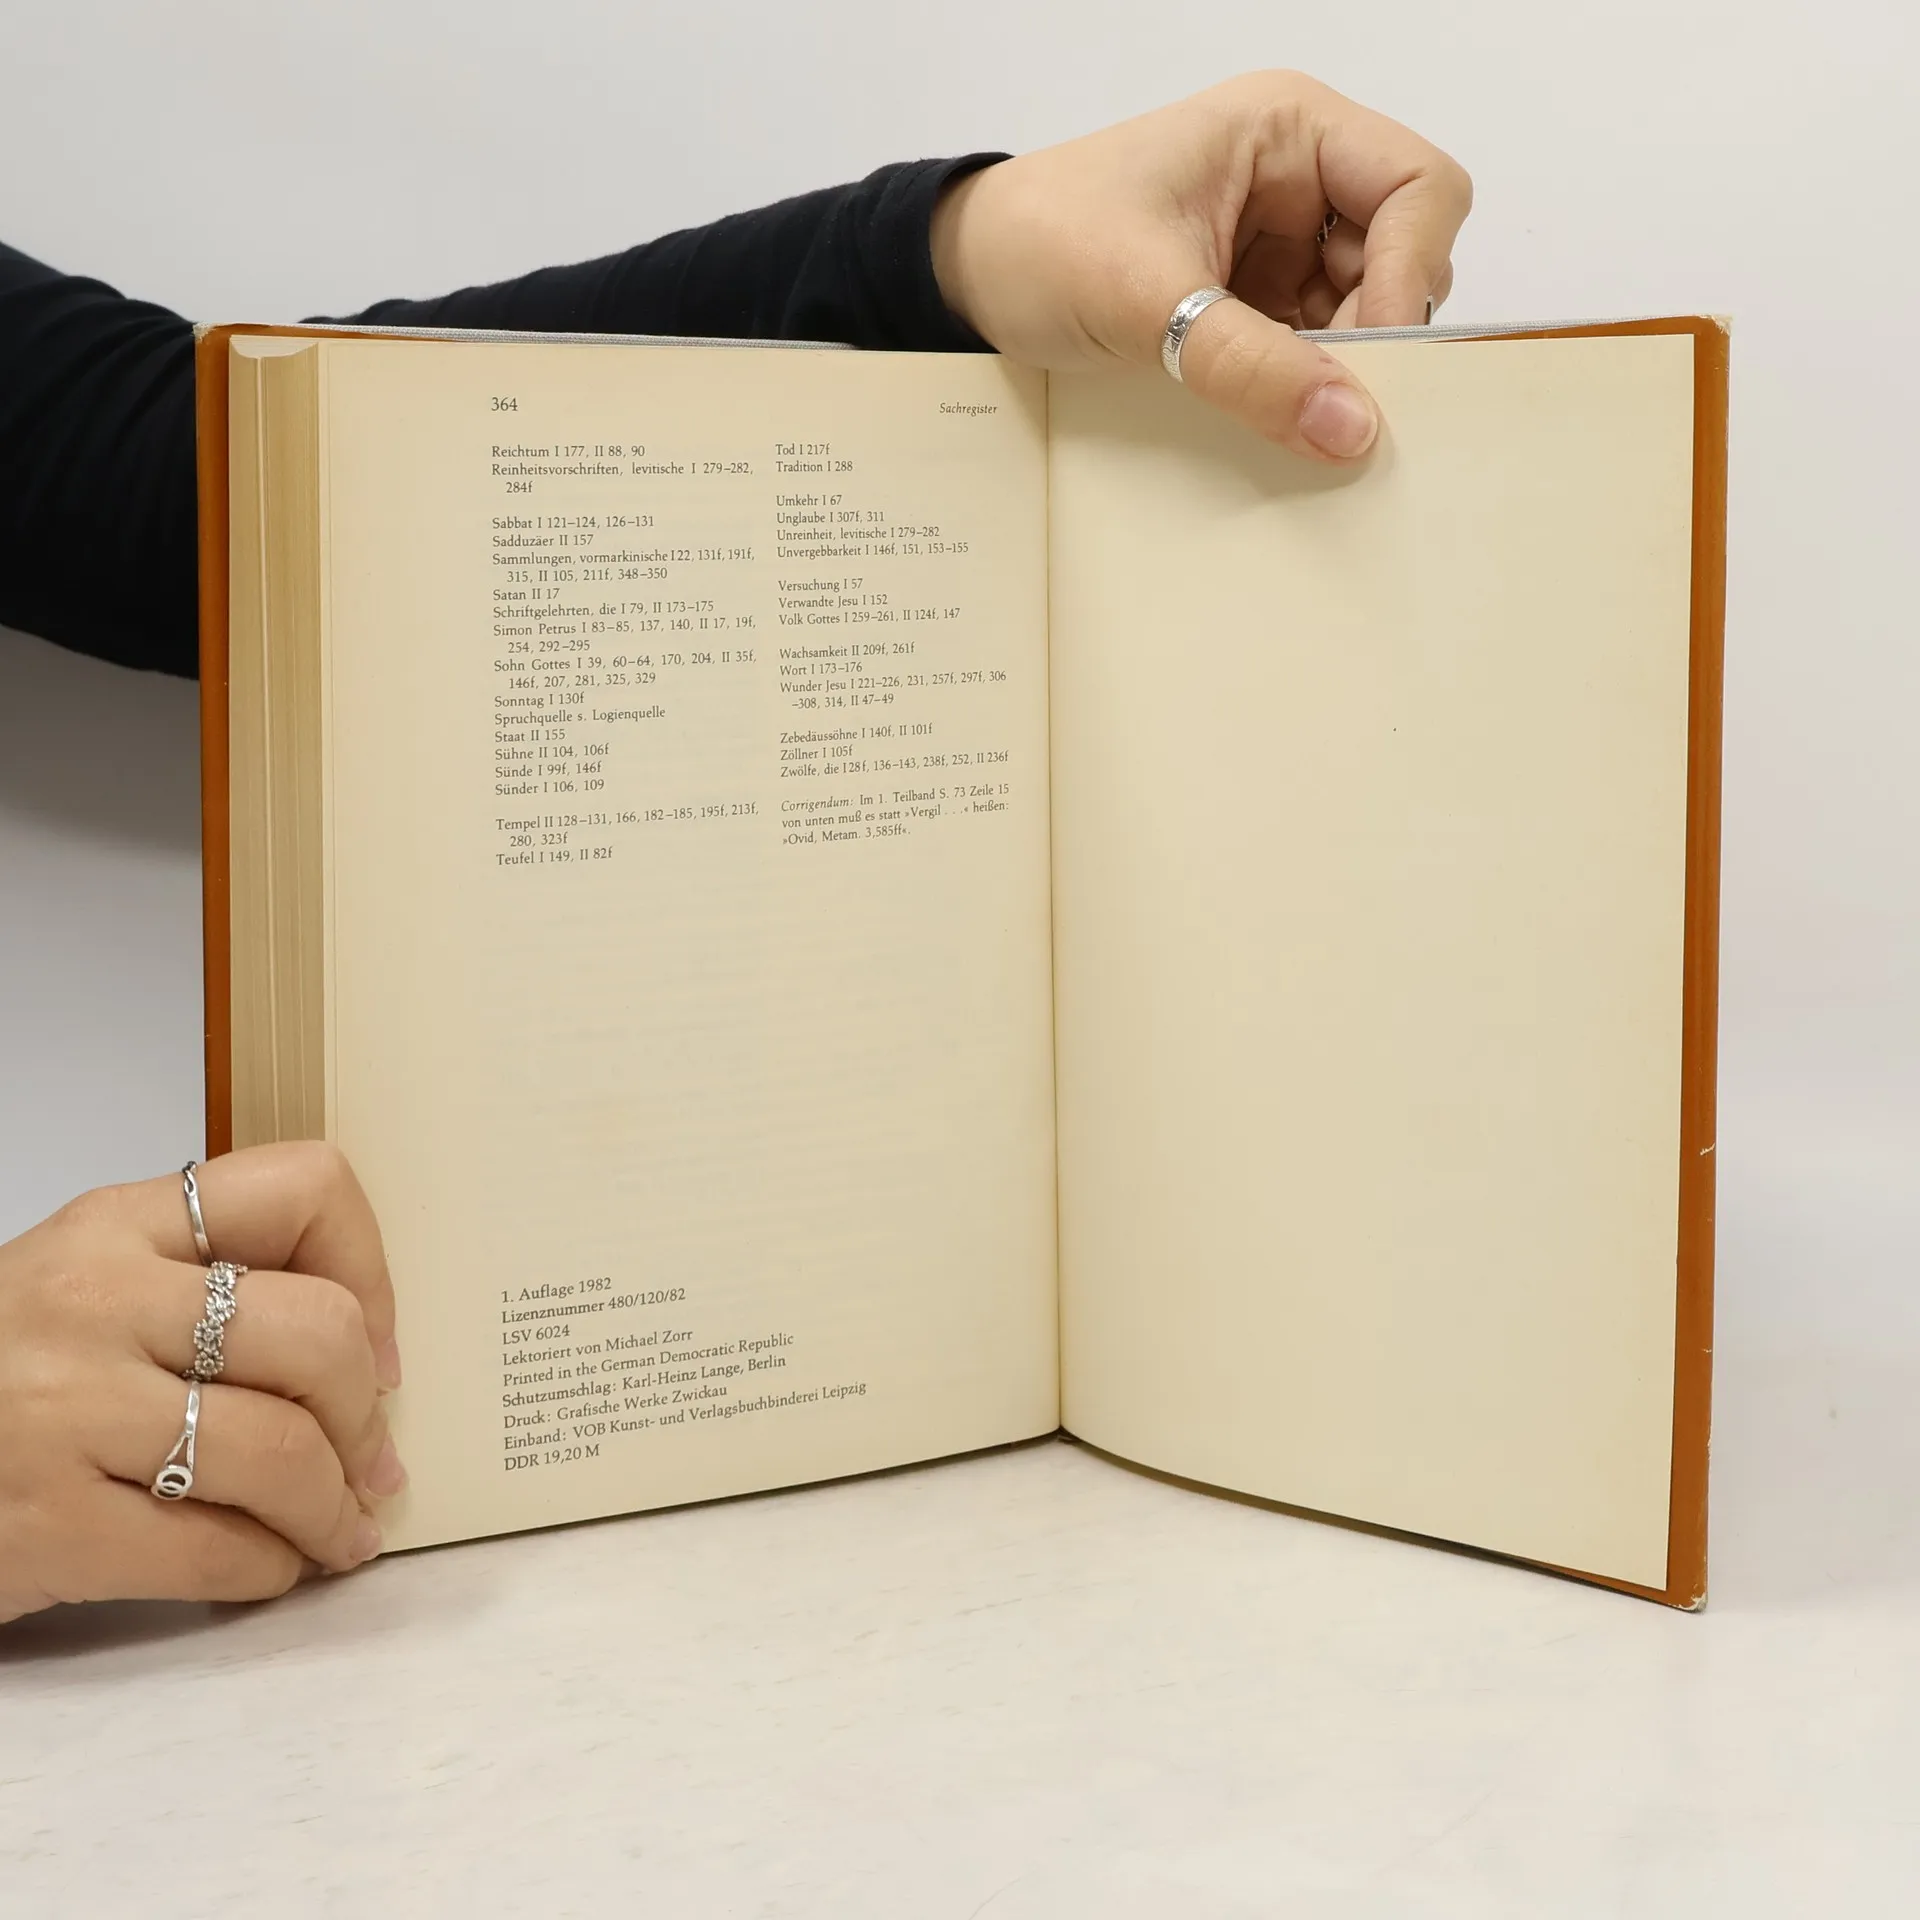 364
Sachregister
Reichtum I 177, II 88, 90
Reinheitsvorschriften, levitische I 279–282,
284f
Sabbat I 121–124, 126–131
Sadduzäer II 157
Sammlungen, vormarkinische I 22, 131f, 191f,
315, II 105, 211f, 348–350
Satan II 17
Schriftgelehrten, die I 79, II 173–175
Simon Petrus I 83–85, 137, 140, II 17, 19f,
254, 292–295
Sohn Gottes I 39, 60–64, 170, 204, II 35f,
146f, 207, 281, 325, 329
Sonntag I 130f
Spruchquelle s. Logienquelle
Staat II 155
Sühne II 104, 106f
Sünde I 99f, 146f
Sünder I 106, 109
Tempel II 128–131, 166, 182–185, 195f, 213f,
280, 323f
Teufel I 149, II 82f
Tod I 217f
Tradition I 288
Umkehr I 67
Unglaube I 307f, 311
Unreinheit, levitische I 279–282
Unvergebbarkeit I 146f, 151, 153–155
Versuchung I 57
Verwandte Jesu I 152
Volk Gottes I 259–261, II 124f, 147
Wachsamkeit II 209f, 261f
Wort I 173–176
Wunder Jesu I 221–226, 231, 257f, 297f, 306
–308, 314, II 47–49
Zebedäussöhne I 140f, II 101f
Zöllner I 105f
Zwölfe, die I 28f, 136–143, 238f, 252, II 236f
Corrigendum: Im 1. Teilband S. 73 Zeile 15
von unten muß es statt »Vergil . . .« heißen:
»Ovid, Metam. 3,585ff«.
1. Auflage 1982
Lizenznummer 480/120/82
LSV 6024
Lektoriert von Michael Zorr
Printed in the German Democratic Republic
Schutzumschlag: Karl-Heinz Lange, Berlin
Druck: Grafische Werke Zwickau
Einband: VOB Kunst- und Verlagsbuchbinderei Leipzig
DDR 19,20 M